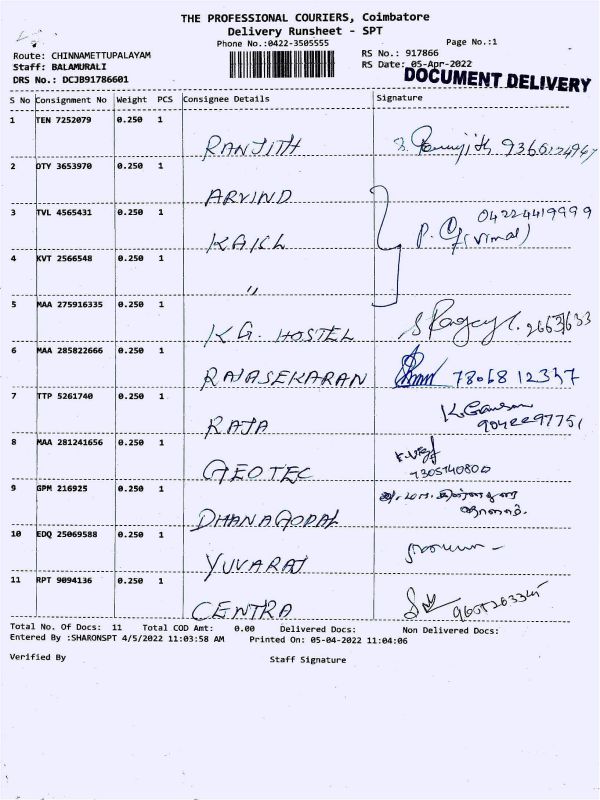 THE PROFESSIONAL COURIERS, Coimbatore
Delivery Runsheet - SPT
Phone No.:0422-3505555
Page No.:1
Route: CHINNAMETTUPALAYAM
RS No.: 917866
Staff: BALAMURALI
RS Date: 05-Apr-2022
DRS No.: DCJB91786601
DOCUMENT DELIVERY
S No Consignment No Weight PCS Consignee Details Signature
1 TEN 7252079 0.250 1
RANJITH
2 DTY 3653970 0.250 1
ARVIND
3 TVL 4565431 0.250 1
04224419999
KAICL P. (Vimal)
4 KVT 2566548 0.250 1
"
5 MAA 275916335 0.250 1
K.G. HOSTEL
6 MAA 285822666 0.250 1
RAJASEKARAN 78068 12347
7 TTP 5261740 0.250 1
RAJA
8 MAA 281241656 0.250 1
GEOTEC 7305140800
9 GPM 216925 0.250 1
DHANAGOPAL
10 EDQ 25069588 0.250 1
YUVARAJ
11 RPT 9094136 0.250 1
CENTRA
Total No. Of Docs: 11 Total COD Amt: 0.00 Delivered Docs: Non Delivered Docs:
Entered By :SHARONSPT 4/5/2022 11:03:58 AM Printed On: 05-04-2022 11:04:06
Verified By Staff Signature